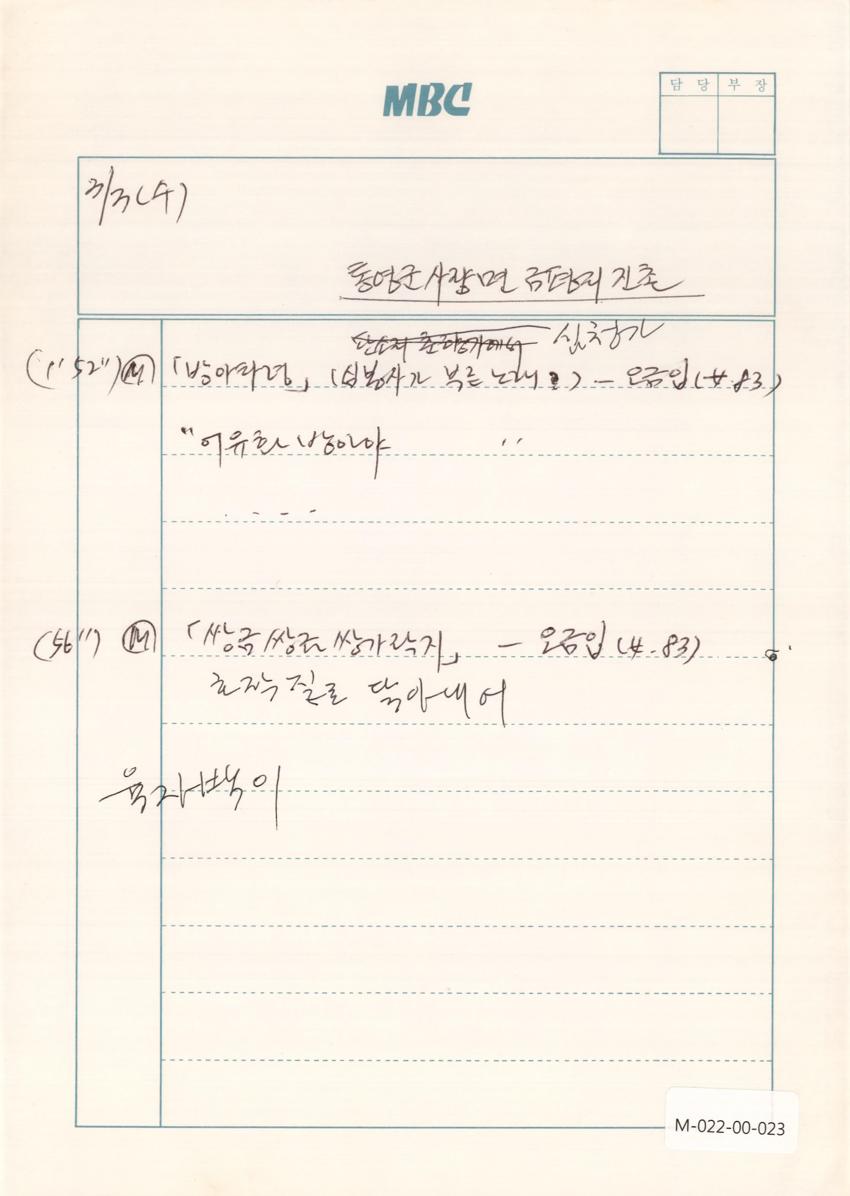 MBC
담 당 부 장
3/3(수)
통영군 사량면 금평리 진촌
심청가
(1' 52") Ⓜ 「방아타령」 (심봉사가 부른 노래) - 오금입 (女. 83)
"어유화 방아야 "
. - - -
(56") Ⓜ 「쌍금쌍금 쌍가락지」 - 오금입 (女. 83)
호작질로 닦아내어
육자백이
M-022-00-023